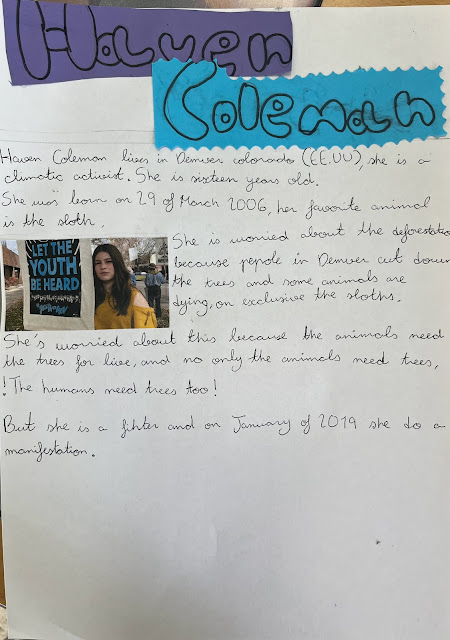 Haven
Coleman
Haven Coleman lives in Denver colorado (EE.UU), she is a
climatic activist. She is sixteen years old.
She was born on 29 of March 2006, her favorite animal
is the sloth.
She is worried about the deforestatio
because pepole in Denver cut down
the trees and some animals are
dying, on exclusive the sloths.
LET THE
YOUTH
BE HEARD
She's worried about this because the animals need
the trees for live, and no only the animals need trees,
!The humans need trees too!
But she is a fihter and on January of 2019 she do a
manifestation.